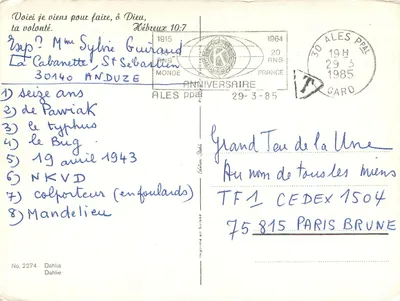 Voici je viens pour faire, ô Dieu,
ta volonté. Hébreux 10:7
Exp? Mme Sylvie Guiraud
La Cabanette, St Sebastien
30140 ANDUZE
1) seize ans
2) de Pawiak
3) le typhus
4) le Bug
5) 19 avril 1943
6) NKVD
7) colporteur (en foulards)
8) Mandelieu
No. 2274 Dahlia
Dahlie
1915 1984
MONDE 20 ANS FRANCE
ANNIVERSAIRE
ALES ppal 29-3-85
30 ALES PPAL
19H
29 3
1985
GARD
T
Grand Jeu de la Une
Au nom de tous les miens
TF1 CEDEX 1504
75 815 PARIS BRUNE